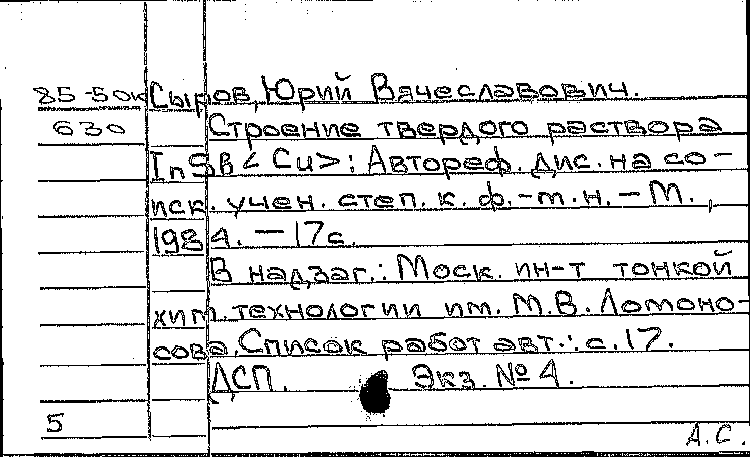 85-50к Сыров, Юрий Вячеславович.
630 Строение твердого раствора
InSb < Cu > : Автореф. дис. на со-
иск. учен. степ. к. ф.-м. н. - М.,
1984. - 17 с.
В надзаг.: Моск. ин-т тонкой
хим. технологии им. М.В. Ломоно-
сова. Список работ авт.: с. 17.
ДСП. Экз. № 4.
5
А.С.